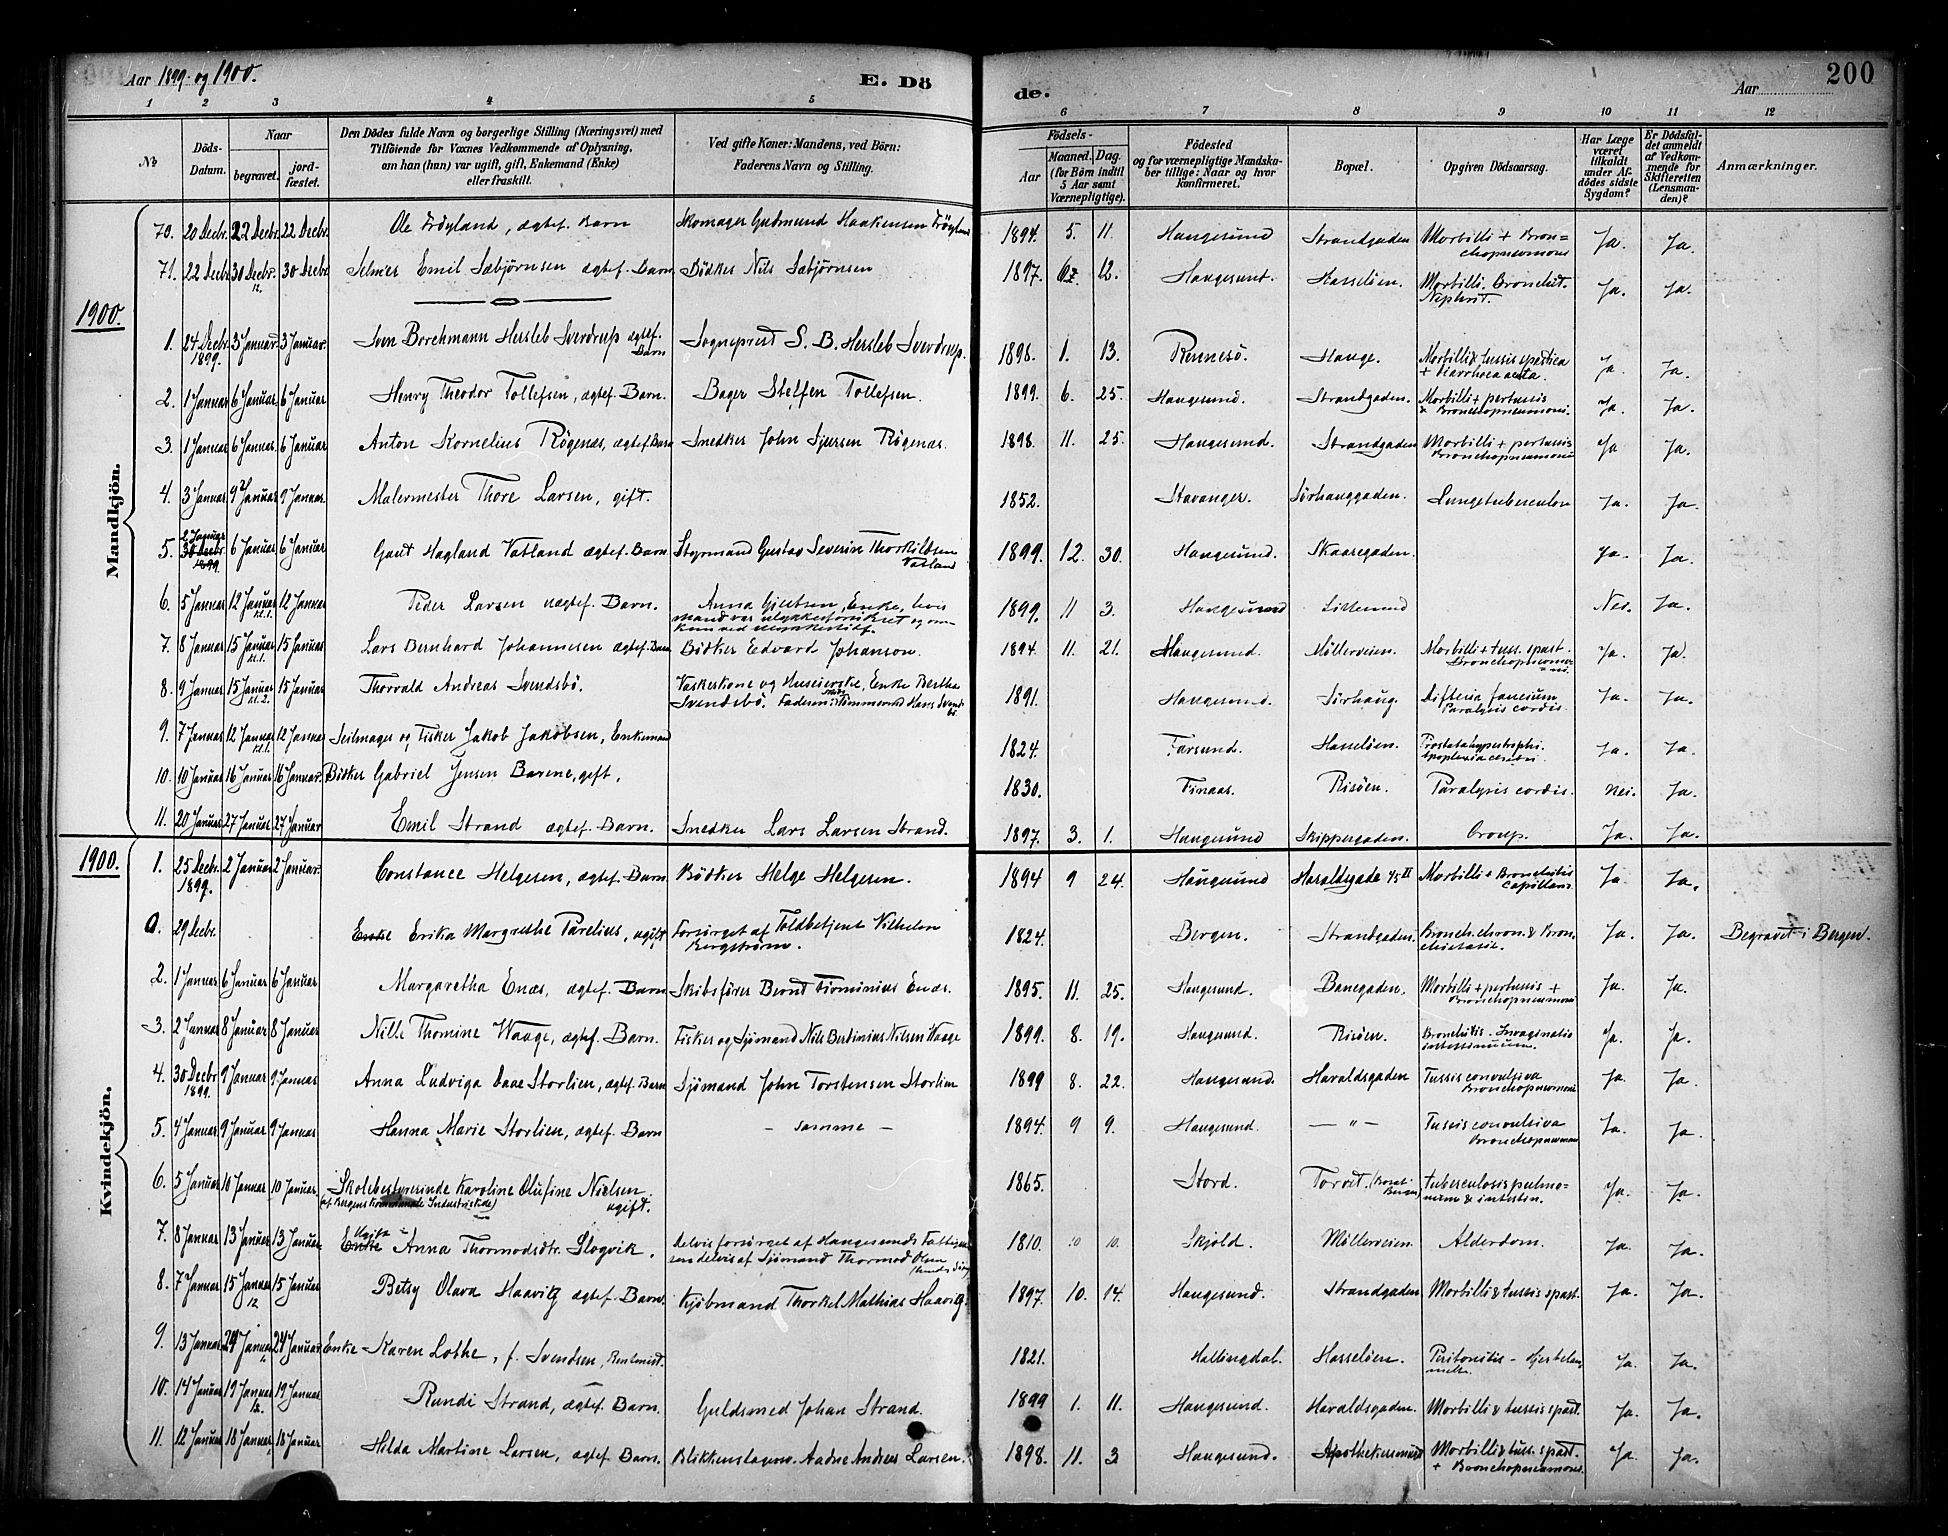 Aar 1899 og 1900. E. Dö de. Aar 200
1 2 3 4 5 6 7 8 9 10 11 12
No Döds-Datum. Naar begravet. jordfæstet. Den Dödes fulde Navn og borgerlige Stilling (Næringsvei) med Tilföiende for Voxnes Vedkommende af Oplysning, om han (hun) var ugift, gift, Enkemand (Enke) eller fraskilt. Ved gifte Koner: Mandens, ved Börn: Faderens Navn og Stilling. Födsels- Aar Maaned. Dag. (for Börn indtil 5 Aar samt Værnepligtige). Födested og for værnepligtige Mandskaber tillige: Naar og hvor konfirmeret. Bopæl. Opgiven Dödsaarsag. Har Læge været tilkaldt under Afdödes sidste Sygdom? Er Dödsfaldet anmeldt af Vedkommende for Skifteretten (Lensmanden)? Anmærkninger.
Mandkjön.
70. 20 Decbr. 22 Decbr. 22 Decbr. Ole Fröyland, ægtef. Barn Skomager Gudmund Haakensen Fröyland 1894. 5. 11. Haugesund Strandgaden Morbilli + Bronchopneumoni Ja. Ja.
71. 22 Decbr 30 Decbr. 30 Decbr Selmer Emil Sæbjörnsen ægtef. Barn Bödker Nils Sæbjörnsen 1897. 12. Haugesund. Hasselöen. Morbilli. Bronchit. Nephrit. Ja. Ja.
1900.
1. 24 Decbr. 1899. 3 Januar 3 Januar. Sven Borchmann Hersleb Sverdrup ægtef. Barn Sogneprest S. B. Hersleb Sverdrup. 1898. 1. 13. Rennesö. Hauge. Morbilli & tussis spastica + Diarrhoea acuta. Ja. Ja.
2. 1 Januar 6 Januar. 6 Januar Henry Theodor Tollefsen, ægtef. Barn. Bager Steffen Tollefsen. 1899. 6. 25. Haugesund. Strandgaden. Morbilli + pertussis & Bronchopneumoni. Ja. Ja.
3. 1 Januar 6 Januar. 6 Januar Anton Kornelius Rögenæs, ægtef. Barn Snedker John Sjursen Rögenæs. 1898. 11. 25. Haugesund. Strandgaden Morbilli + pertussis Bronchopneumoni Ja Ja.
4. 3 Januar 9 Januar. 9 Januar. Malermester Thore Larsen, gift. 1852. Stavanger. Sörhauggaden. Lungetuberculose Ja. Ja.
5. 2 Januar 30 Decbr. 1899. 6 Januar 6 Januar Gaut Hagland Vatland ægtef. Barn. Styrmand Gustav Severin Thorkildsen Vatland 1899. 12. 30. Haugesund. Skaaregaden. Ja. Ja.
6. 5 Januar 12 Januar kl. 1. 12 Januar Peder Larsen uægtef. Barn. Anna Gjertsen, Enke, hvis Mand var ulykkesforsikret og omkom ved 1899. 11 3. Haugesund Lillesund Nei. Ja.
7. 8 Januar 15 Januar kl. 1. 15 Januar Lars Bernhard Johannesen ægtef. Barn Bödker Edvard Johanson. 1894. 11. 21. Haugesund. Möllerveien. Morbilli + tuss. spast. Bronchopneumoni. Ja. Ja.
8. 9 Januar 15 Januar kl. 2. 15 Januar Thorvald Andreas Svendsbö. Vaskekone og Huseierske, Enke Bertha Svendsbö. Faderen: Tömmermd. Hans Svendsbö. 1891. Haugesund. Sörhaug. Difteria faucium Paralysis cordis. Ja. Ja.
9. 7 Januar 12 Januar kl. 1. 12 Januar Seilmager og Fisker Jakob Jakobsen, Enkemand 1824. Farsund. Hasselöen. Prostatahypertrophi. Apoplexia cerebri. Ja. Ja.
10. 10 Januar 16 Januar 16 Januar. Bödker Gabriel Jensen Barene, gift. 1830. Finaas. Risöen. Paralysis cordis. Nei. Ja.
11. 20 Januar 27 Januar 27 Januar Emil Strand ægtef. Barn. Snedker Lars Larsen Strand. 1897. 3. 1. Haugesund Skippergaden. Croup. Ja. Ja.
1900.
Kvindekjön.
1. 25 Decbr. 1899. 2 Januar 2 Januar. Constance Helgesen, ægtef. Barn Bödker Helge Helgesen. 1894 9 24. Haugesund Haraldsgade 45 II Morbilli + Bronchitis capillaris Ja. Ja.
0. 29 Decbr. Enke Erika Margrethe Parelius, ugift Forsörget af Toldbetjent Vilhelm Bergström. 1824. Bergen. Strandgaden. Bronch. chron. & Bronchiectasie. Ja. Ja. Begravet i Bergen.
2. 1 Januar 6 Januar 6 Januar Margaretha Enæs, ægtef. Barn Skibsförer Bernt Enæs. 1895. 11. 25. Haugesund. Banegaden. Morbilli + pertussis + Bronchopneumoni Ja. Ja.
3. 2 Januar 8 Januar 8 Januar Nille Thomine Waage, ægtef. Barn. Fisker og Sjömand Nils Bertinius Nilsen Waage 1899. 8. 19. Haugesund. Risöen. Bronchitis. Invaginatio intestinuum. Ja. Ja.
4. 30 Decbr 1899. 9 Januar 9 Januar Anna Ludviga Aase Storlien, ægtef. Barn Sjömand John Torstensen Storlien 1899 8. 22. Haugesund. Haraldsgaden Tussis convulsiva Bronchopneumoni Ja. Ja.
5. 4 Januar 9 Januar 9 Januar Hanna Marie Storlien, ægtef. Barn — samme — 1894. 9 9. Haugesund. — " — Tussis convulsiva Bronchopneumoni Ja. Ja.
6. 5 Januar 10 Januar 10 Januar. Skolebestyrerinde Karoline Olufine Nielsen (af Bergens Industriskole) ugift. 1865. Stord. Torvet. Tuberculosis pulmonum & intestin. Ja. Ja.
7. 8 Januar 13 Januar 13 Januar Enke Ugift Anna Thormodsdtr. Slogvik. Delvis forsörget af Haugesunds Fattigv. en delvis af Sjömand Thormod Olsen 1810. 10 10. Skjold. Möllerveien. Alderdom. Ja. Ja.
8. 7 Januar 15 Januar 12. 15 Januar Betsy Olava Haavig ægtef. Barn. Kjöbmand Thorkel Mathias Haavig. 1897. 10. 14. Haugesund. Strandgaden. Morbilli & tussis spast. Ja. Ja.
9. 13 Januar 24 Januar 24 Januar Enke Karen Lothe, f. Svendsen, Rentenist. 1821. Hallingdal. Hasselöen. Peritonitis – Hjertelammelse Ja. Ja.
10. 14 Januar 19 Januar 19 Januar Rundi Strand, ægtef. Barn. Guldsmed Johan Strand. 1899 1. 11. Haugesund. Haraldsgaden. Morbilli & tussis spast. Ja. Ja.
11. 12 Januar 18 Januar 18 Januar Hilda Martine Larsen, ægtef. Barn. Blikkenslagersv. Aadne Andreas Larsen. 1898. 11. 3 Haugesund. Morbilli & tuss. spast. + Bronchopneumoni. Ja. Ja.